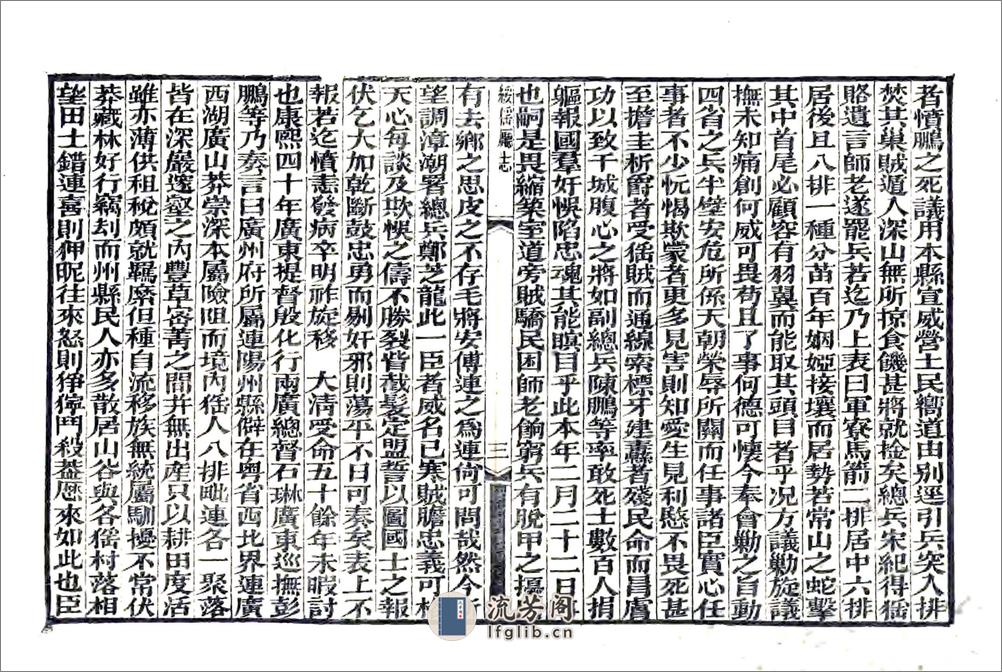 者憤鵬之死議用本縣宣威營土民嚮道由別逕引兵突入排
焚其巢賊遁入深山無所掠食饑甚將就撿矣總兵宋紀得猺
賂遺言師老遂罷兵若迄乃上表曰軍寮馬箭二排居中六排
居後且八排一種分苗百年姻婭接壤而居勢若常山之蛇擊
其中首尾必顧容有羽翼而能取其頭目者乎况方議勦旋議
撫未知痛創何威可畏苟且了事何德可懷今奉會勦之旨動
四省之兵半壁安危所係天朝榮辱所關而任事諸臣實心任
事者不少忨愒欺蒙者更多見害則知愛生見利慜不畏死甚
至擔圭析爵者受猺賊而通線索標牙建纛者殘民命而冒膚
功以致干城腹心之將如副總兵陳鵬等率敢死士數百人捐
軀報國羣奸悞陷忠魂其能瞑目乎此本年二月二十二日事
也嗣是畏縮築室道旁賊驕民困師老餉窮兵有脫甲之擾
綏傜廳志
三
有去鄉之思皮之不存毛將安傅連之為連尙可問哉然今所
望調漳潮署總兵鄭芝龍此一臣者威名已寒賊膽忠義可格
天心每談及欺悞之儔不勝裂眥截髮定盟誓以圖國士之報
伏乞大加乾斷鼓忠勇而剔奸邪則蕩平不日可奏矣表上不
報若迄憤恚發病卒明祚旋移　大清受命五十餘年未暇討
也康熙四十年廣東提督殷化行兩廣總督石琳廣東巡撫彭
鵬等乃奏言曰廣州府所屬連陽州縣僻在粤省西北界連廣
西湖廣山莽崇深本屬險阻而境內猺人八排毗連各一聚落
皆在深嚴邃壑之內豐草密菁之間幷無出産只以耕田度活
雖亦薄供租稅頗就羈縻但種自流移族無統屬馴擾不常伏
莽藏林好行竊刦而州縣民人亦多散居山谷與各猺村落相
望田土錯連喜則狎昵往來怒則猙獰鬥殺葢歷來如此也臣
流芳阁
lfglib.cn